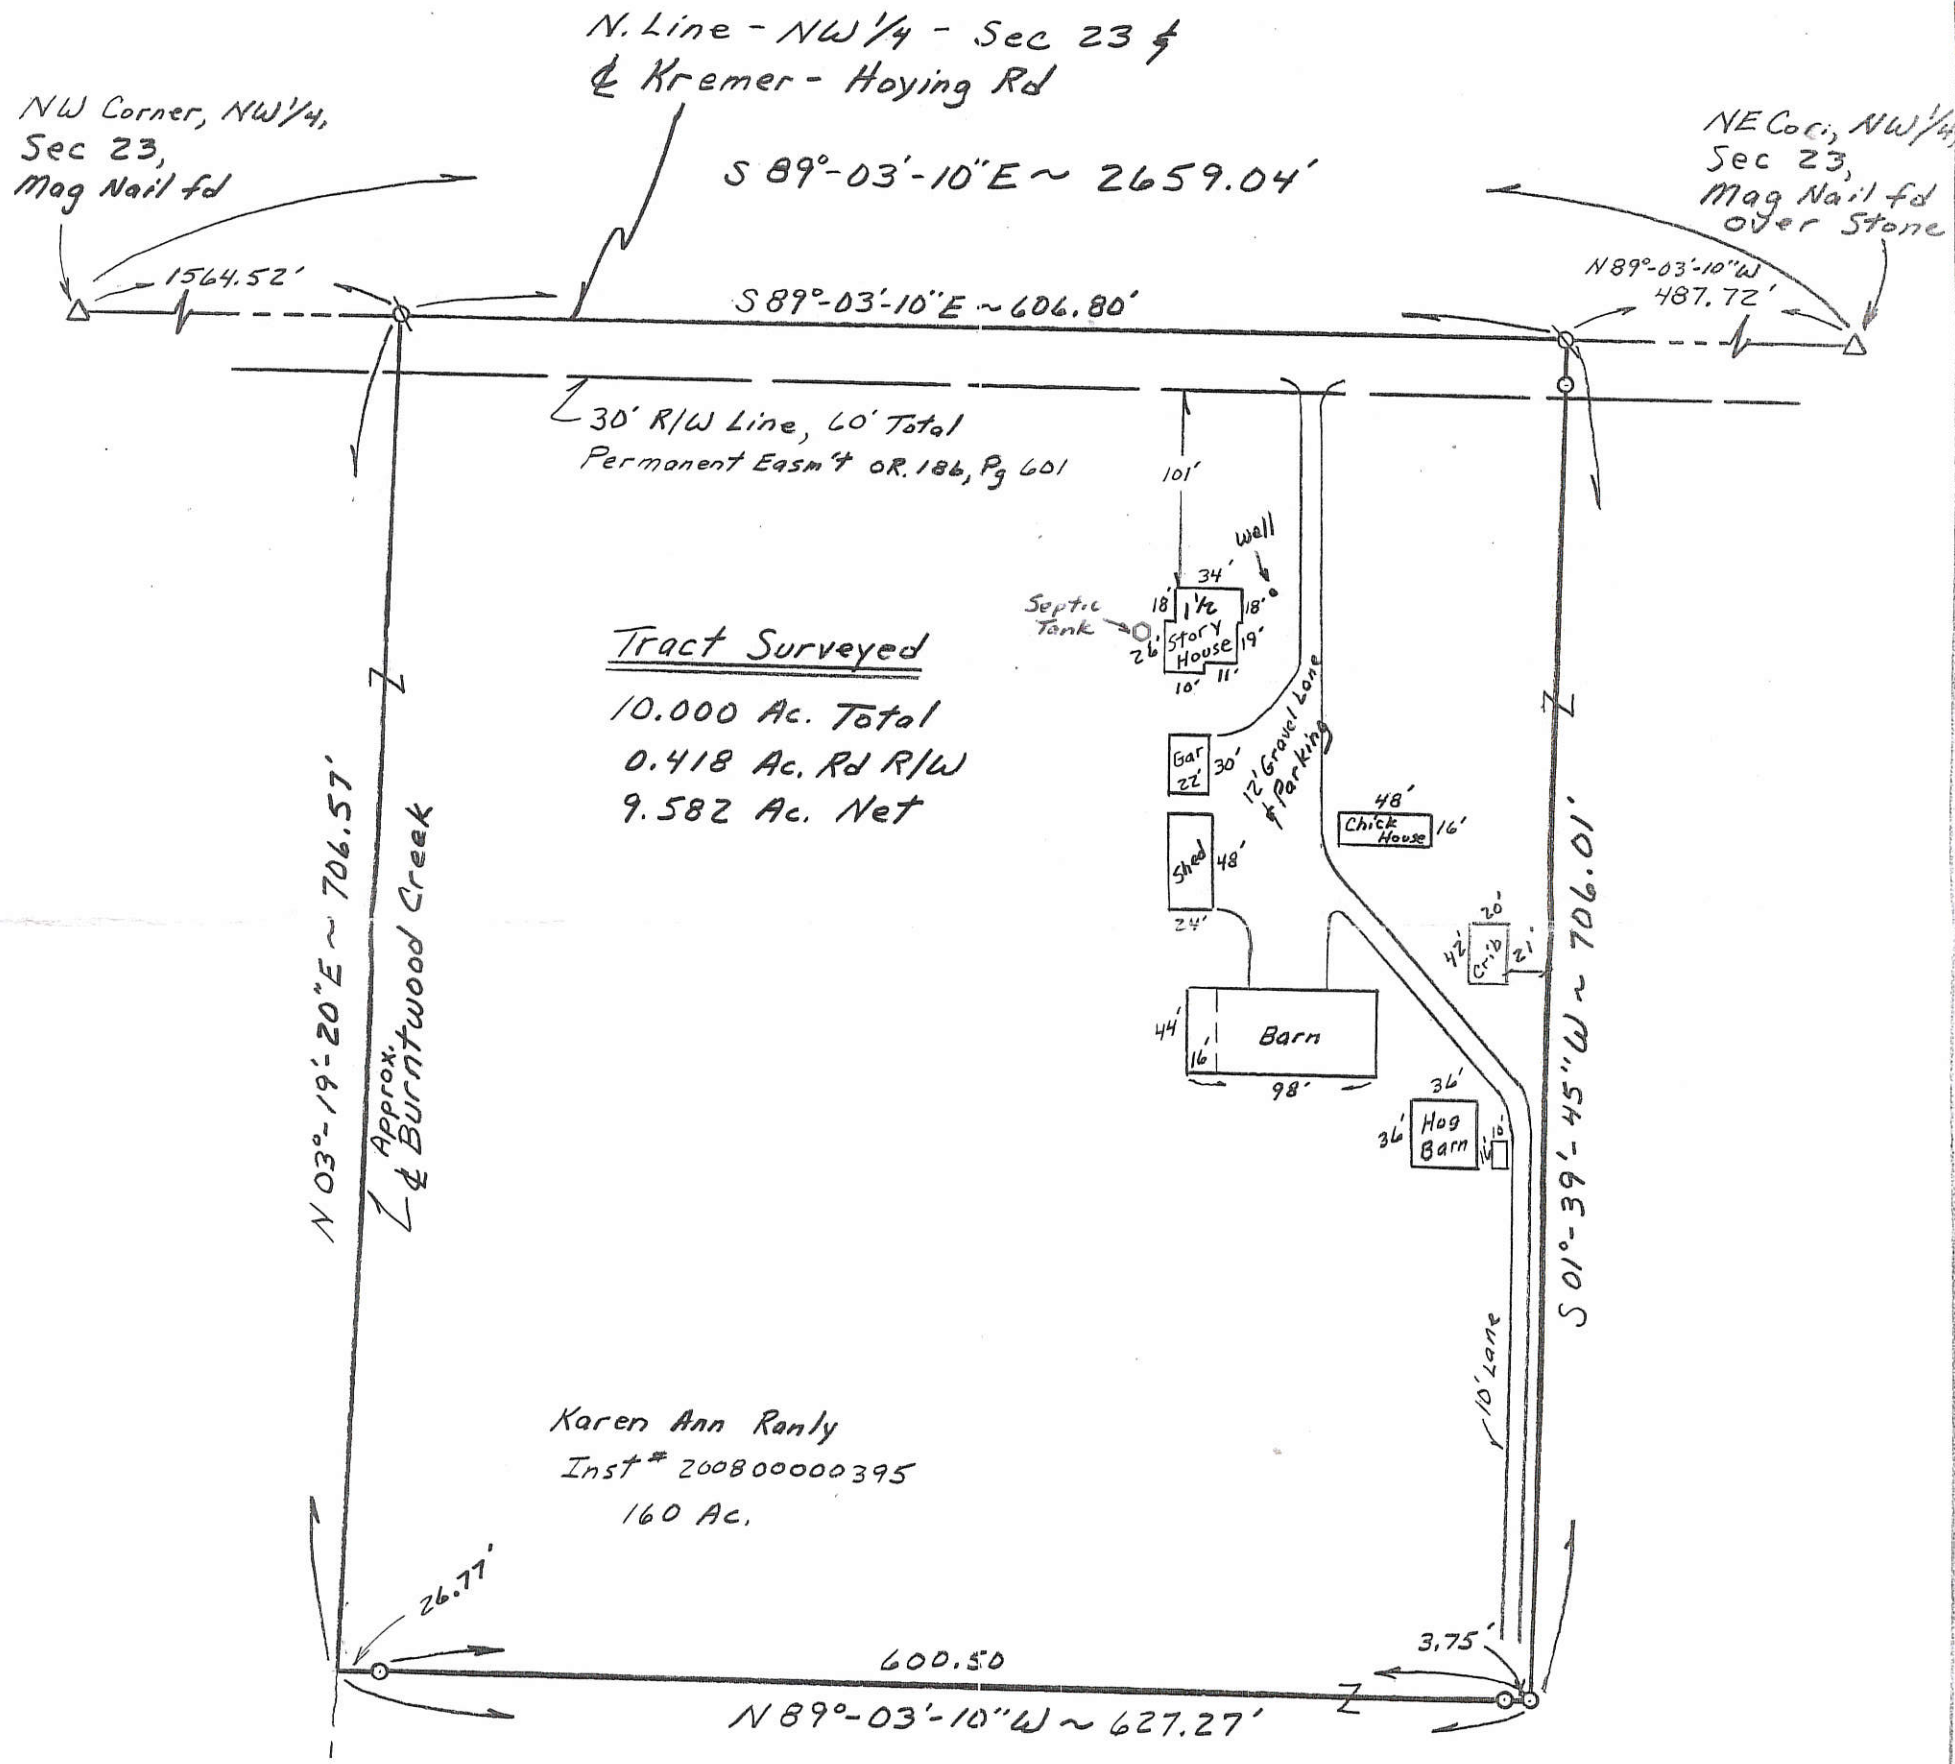 N. Line - NW 1/4 - Sec 23 &
℄ Kremer - Hoying Rd
NW Corner, NW 1/4,
Sec 23,
Mag Nail fd
NE Cor., NW 1/4,
Sec 23,
Mag Nail fd
over Stone
S 89°-03'-10" E ~ 2659.04'
1564.52'
S 89°-03'-10" E ~ 606.80'
N 89°-03'-10" W
487.72'
30' R/W Line, 60' Total
Permanent Easm't OR. 186, Pg 601
101'
Well
34'
18'
1 1/2
18'
Septic
Tank
Story
House
26'
19'
10'
11'
Tract Surveyed
10.000 Ac. Total
0.418 Ac. Rd R/W
9.582 Ac. Net
12' Gravel Lane
& Parking
Gar
22'
30'
48'
Chick
House
16'
Shed
48'
24'
20'
42'
Crib
21'
44'
16'
Barn
98'
36'
36'
Hog
Barn
10'
16'
N 03°-19'-20" E ~ 706.57'
Approx.
℄ Burntwood Creek
S 01°-39'-45" W ~ 706.01'
10' Lane
Karen Ann Ranly
Inst # 200800000395
160 Ac.
26.77'
600.50
3.75'
N 89°-03'-10" W ~ 627.27'